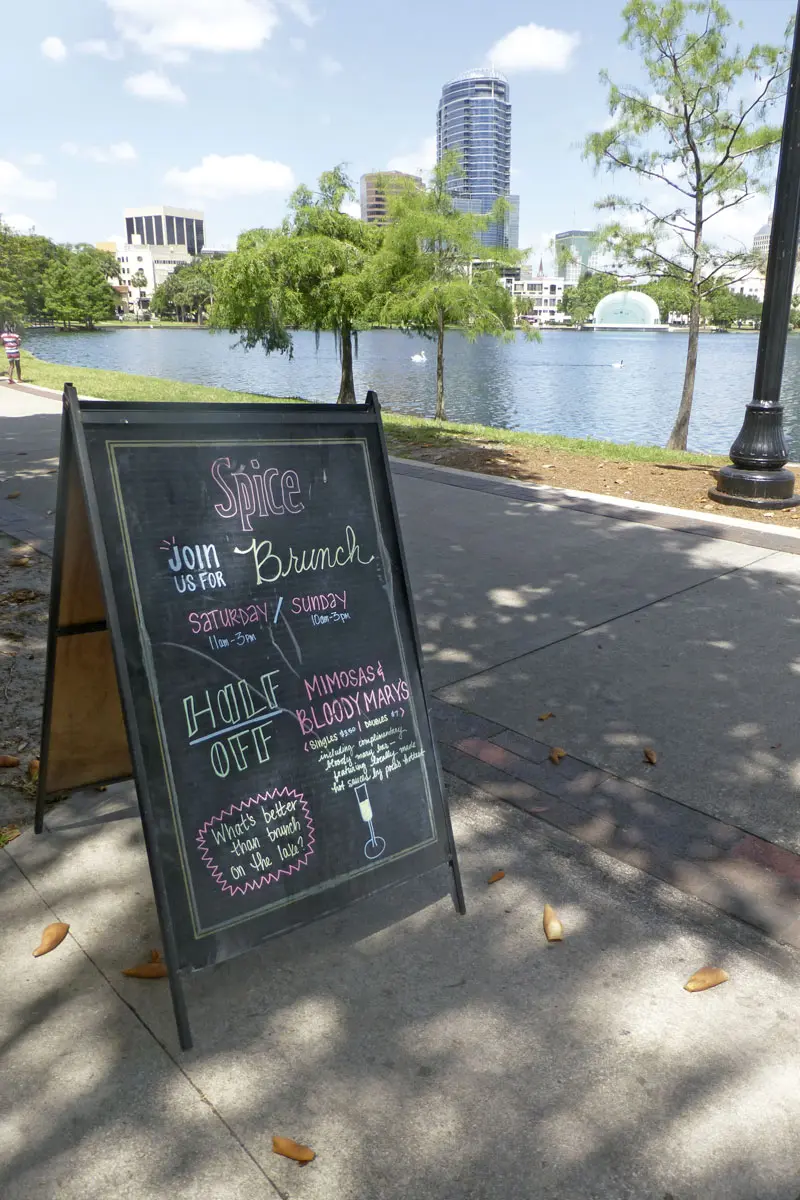 Spice
JOIN
US FOR
Brunch
SATURDAY / SUNDAY
11am-3pm
10am-3pm
HALF
OFF
MIMOSAS &
BLOODY MARYS
(SINGLES $3.50 | DOUBLES $7)
including complimentary
bloody mary bar-
featuring locally made
hot sauces by
What's better
than brunch
on the lake?